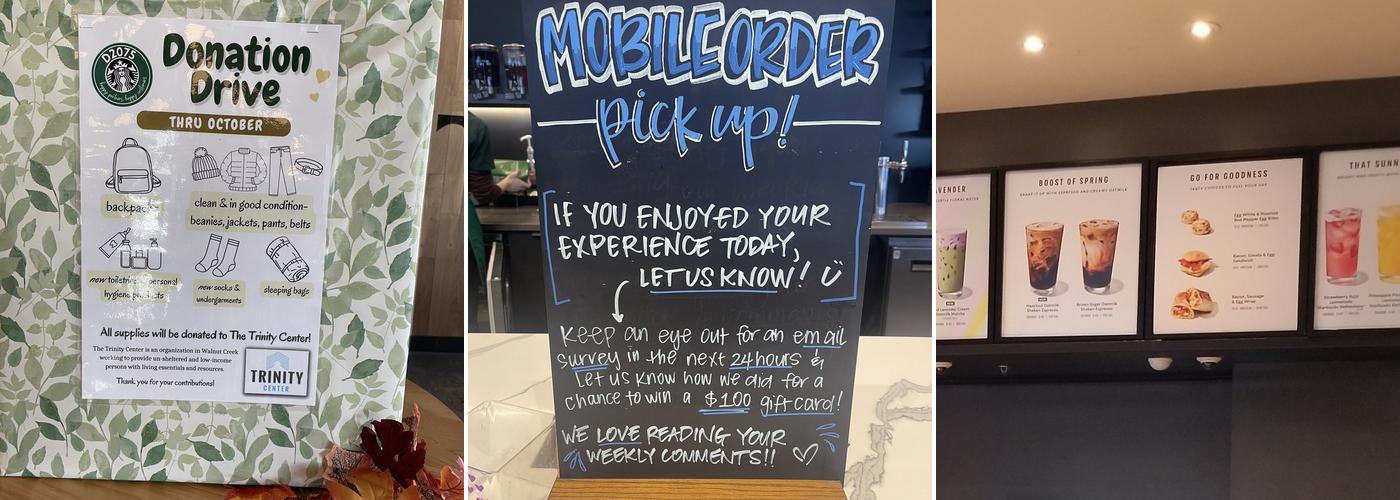 D2075
Donation
Drive
THRU OCTOBER
backpacks
clean & in good condition-
beanies, jackets, pants, belts
new toiletries & personal
hygiene products
new socks &
undergarments
sleeping bags
All supplies will be donated to The Trinity Center!
The Trinity Center is an organization in Walnut Creek
working to provide un-sheltered and low-income
persons with living essentials and resources.
Thank you for your contributions!
TRINITY
CENTER
MOBILE ORDER
pick up!
IF YOU ENJOYED YOUR
EXPERIENCE TODAY,
LET US KNOW!
Keep an eye out for an email
survey in the next 24 hours &
Let us know how we did for a
chance to win a $100 gift card!
WE LOVE READING YOUR
WEEKLY COMMENTS!!
AVENDER
BOOST OF SPRING
SHAKE IT UP WITH ESPRESSO AND CREAMY OATMILK
Hazelnut Oatmilk
Shaken Espresso
Brown Sugar Oatmilk
Shaken Espresso
GO FOR GOODNESS
TASTY CHOICES TO FUEL YOUR DAY
Egg White & Roasted
Red Pepper Egg Bites
Bacon, Gouda & Egg
Sandwich
Bacon, Sausage
& Egg Wrap
THAT SUNN